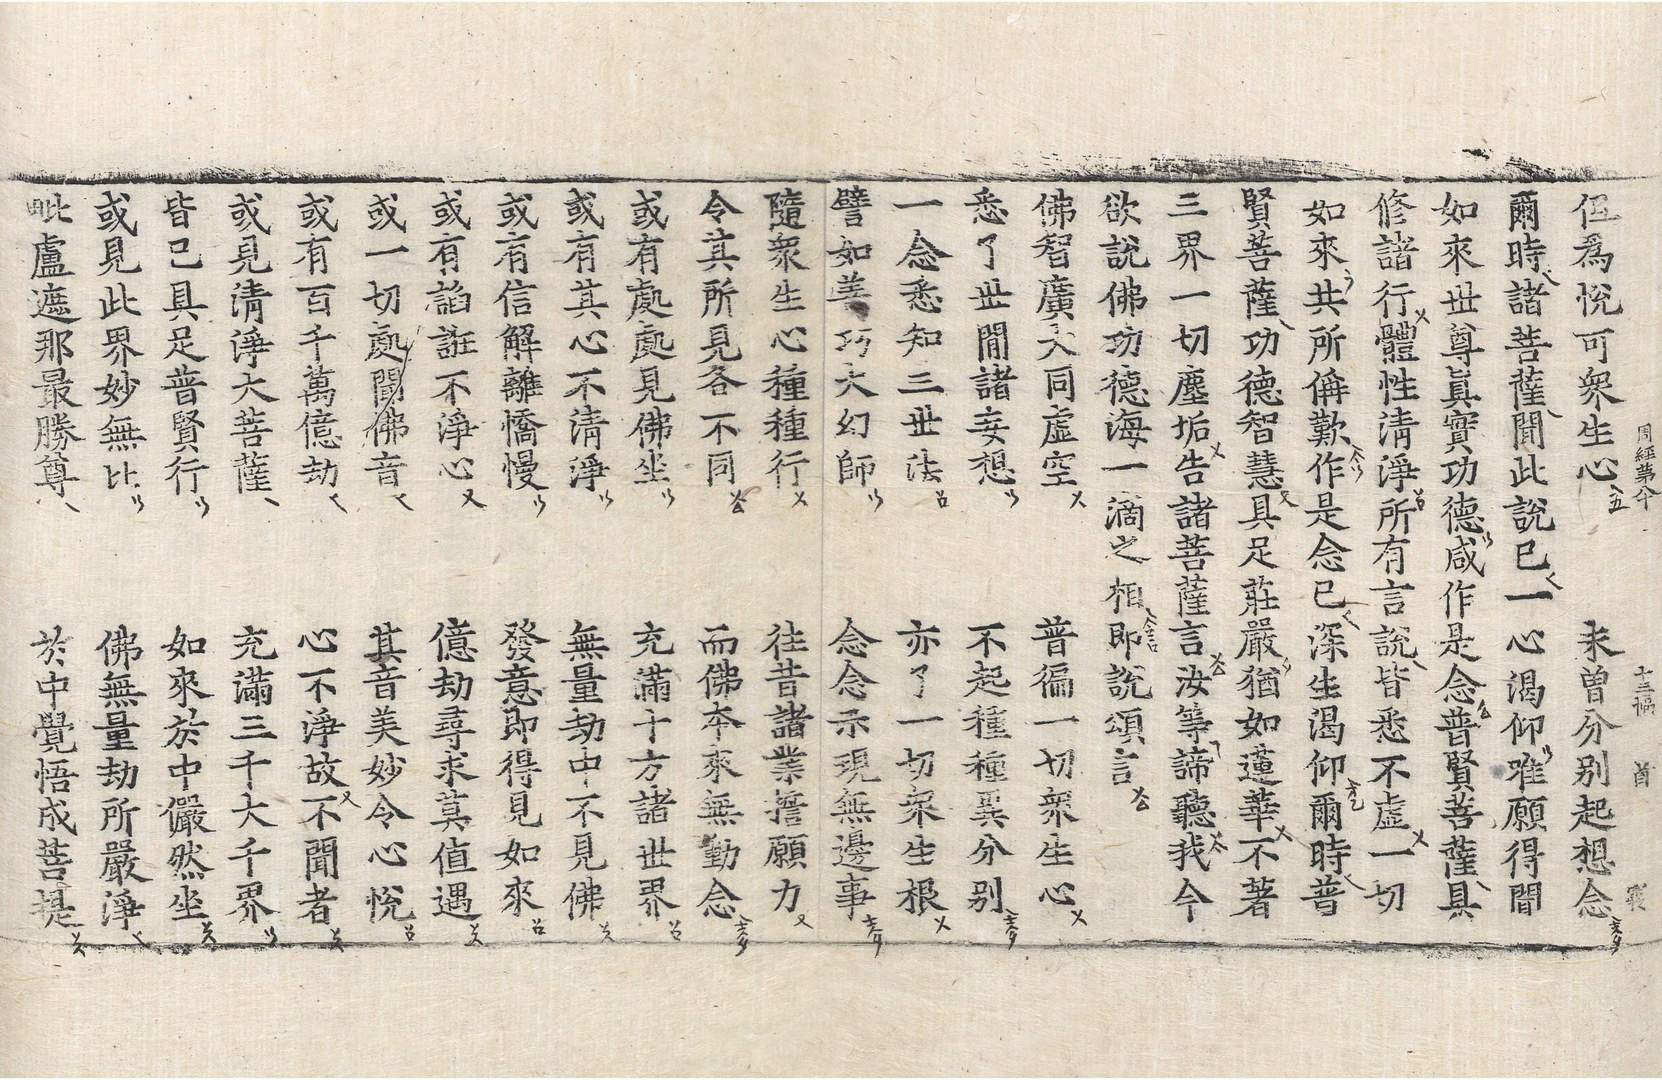 但爲悅可衆生心 未曾分别起想念
爾時諸菩薩聞此說已一心渴仰唯願得聞
如來世尊眞實功德咸作是念普賢菩薩具
修諸行體性清淨所有言說皆悉不虛一切
如來共所偁歎作是念已深生渴仰爾時普
賢菩薩功德智慧具足莊嚴猶如蓮華不著
三界一切塵垢告諸菩薩言汝等諦聽我今
欲說佛功德海一滴之相即說頌言
佛智廣大同虛空 普徧一切衆生心
悉了世間諸妄想 不起種種異分别
一念悉知三世法 亦了一切衆生根
譬如善巧大幻師 念念示現無邊事
隨衆生心種種行 往昔諸業誓願力
令其所見各不同 而佛本來無動念
或有處處見佛坐 充滿十方諸世界
或有其心不清淨 無量劫中不見佛
或有信解離憍慢 發意即得見如來
或有諂誑不淨心 億劫尋求莫值遇
或一切處聞佛音 其音美妙令心悅
或有百千萬億劫 心不淨故不聞者
或見清淨大菩薩 充滿三千大千界
皆已具足普賢行 如來於中儼然坐
或見此界妙無比 佛無量劫所嚴淨
毗盧遮那最勝尊 於中覺悟成菩提